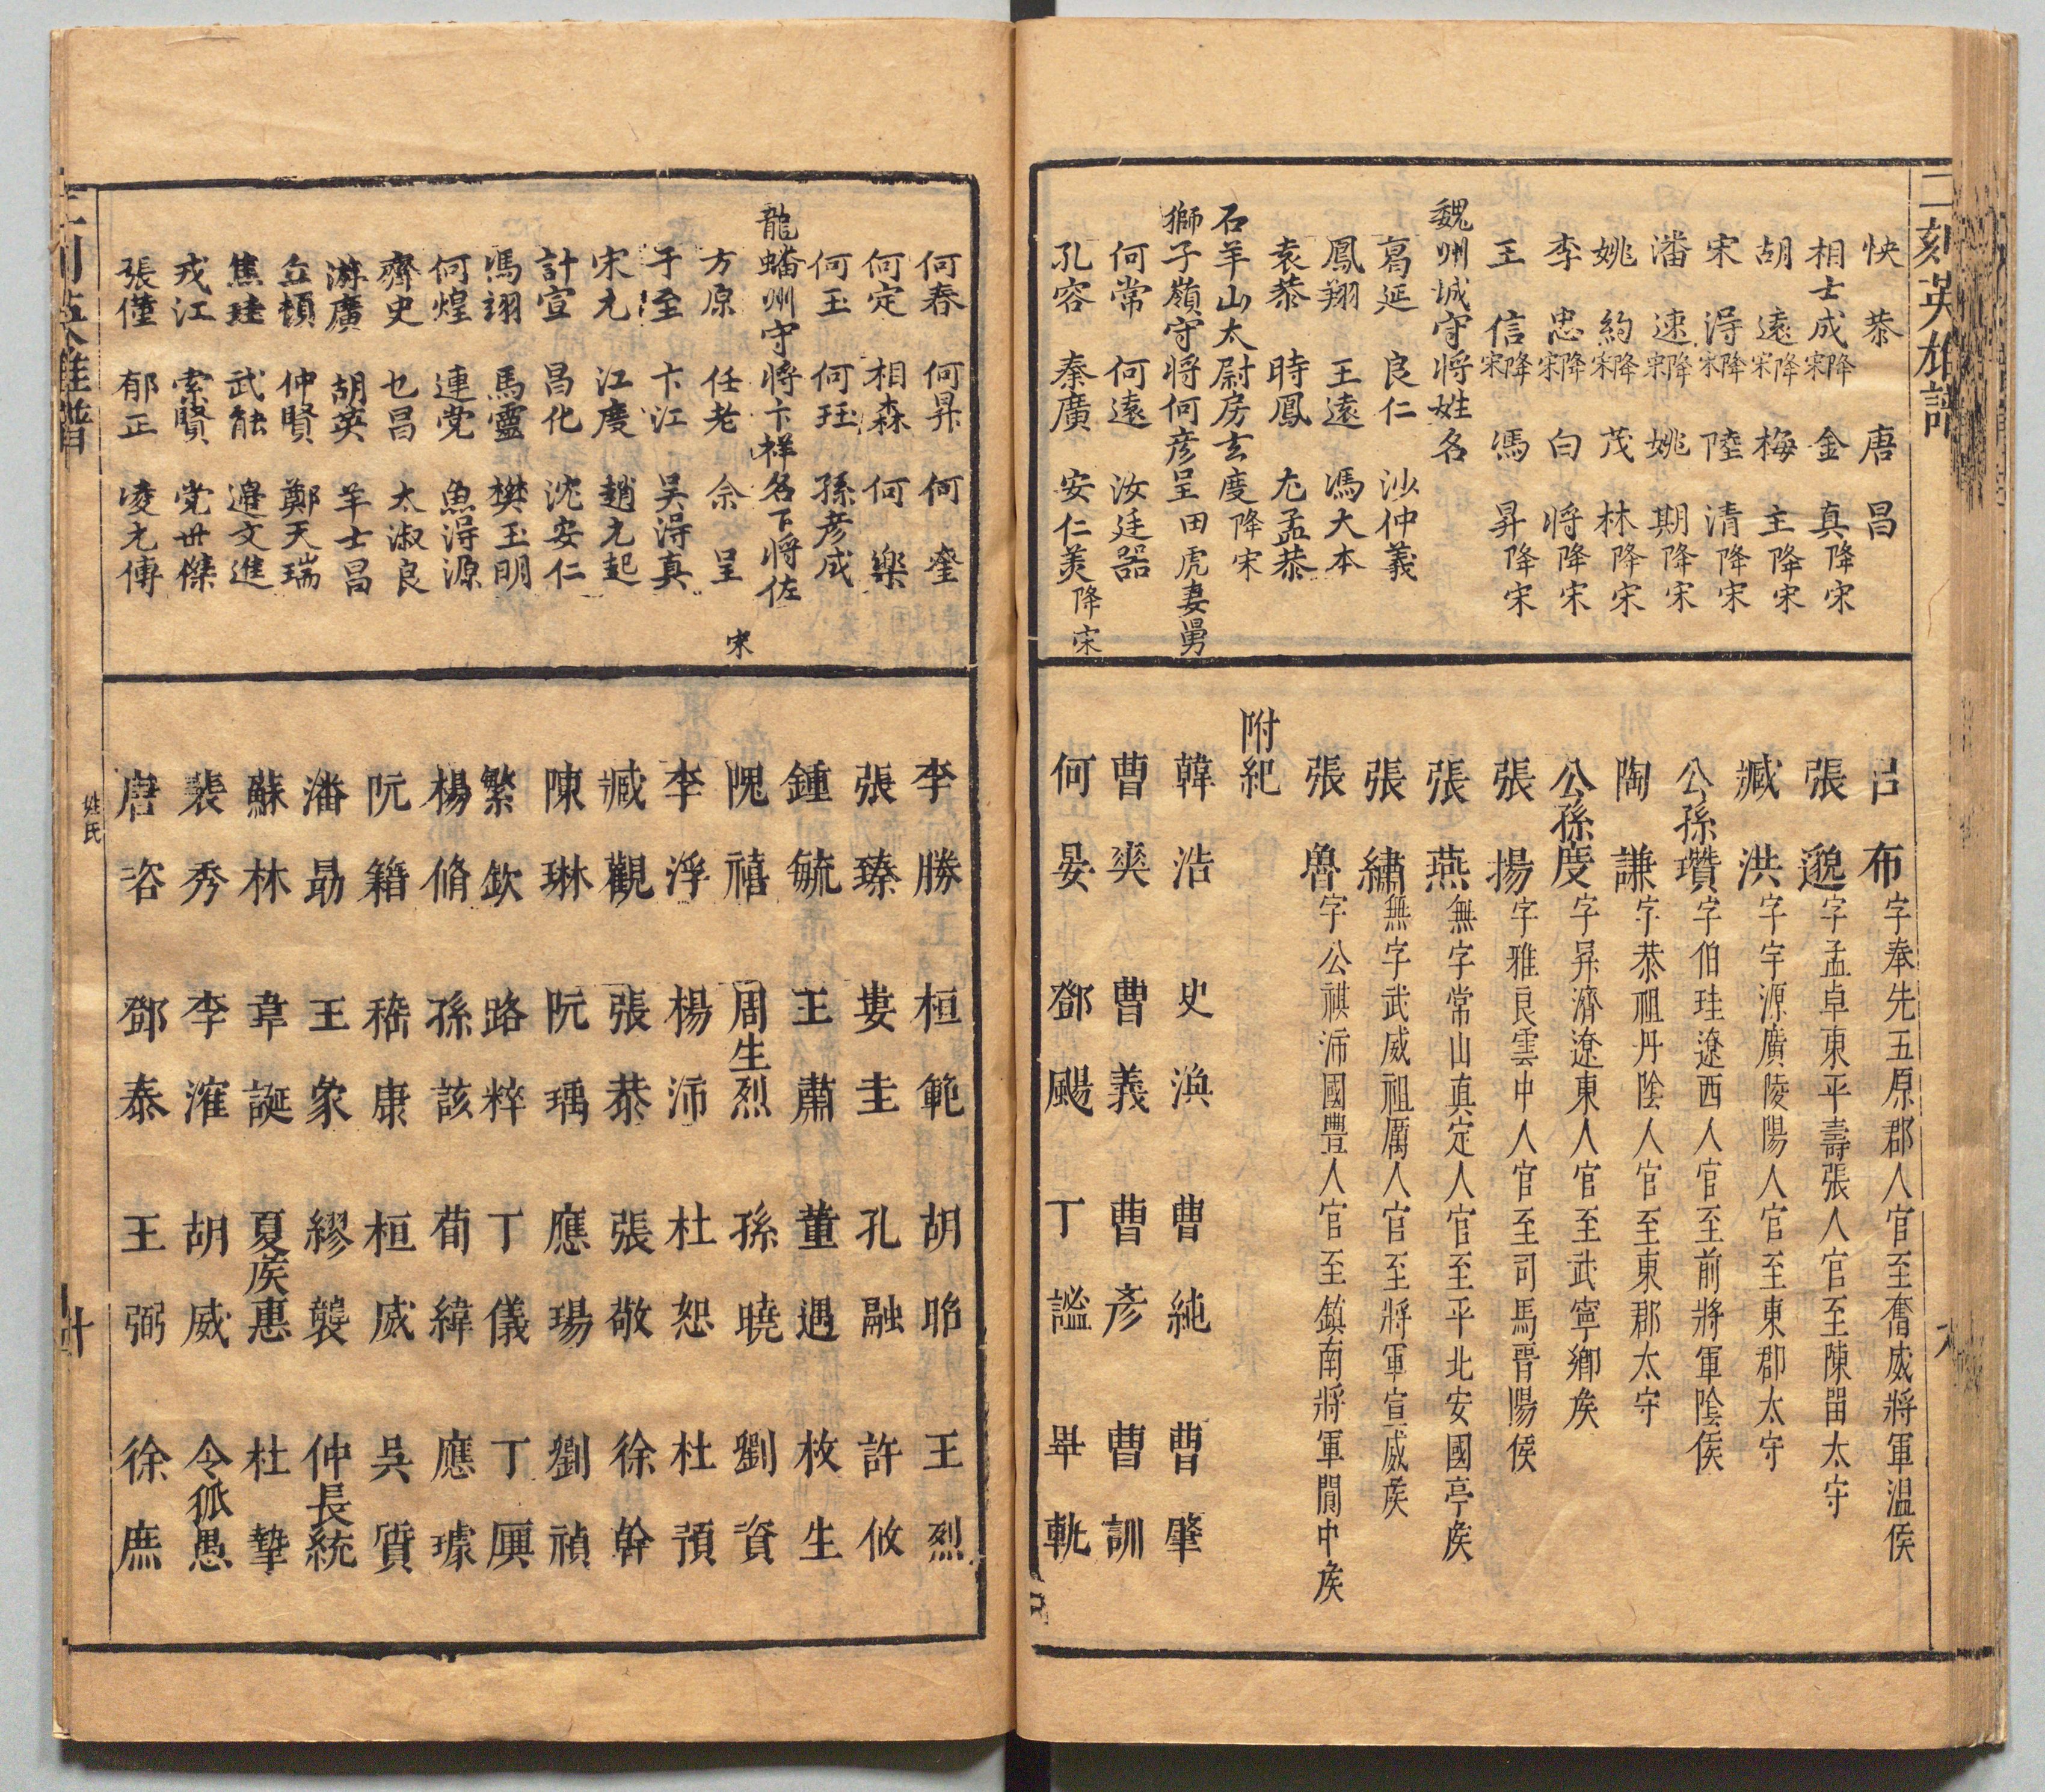 二刻英雄譜
怏恭 唐昌
相士成降宋 金真降宋
胡遠降宋 梅主降宋
宋淂降宋 陸清降宋
潘速降宋 姚期降宋
姚約降宋 茂林降宋
李忠降宋 白将降宋
王信降宋 馮昇降宋
魏州城守将姓名
葛延 良仁 沙仲義
鳳翔 王遠 馮大本
袁恭 時鳳 尤孟恭
石羊山太尉房玄度降宋
獅子嶺守将何彦呈田虎妻舅
何常 何遠 汝廷器
孔容 秦廣 安仁美降宋
呂布字奉先五原郡人官至奮威將軍温侯
張邈字孟卓東平壽張人官至陳畱太守
臧洪字字源廣陵陽人官至東郡太守
公孫瓚字伯珪遼西人官至前將軍陰侯
陶謙字恭祖丹陰人官至東郡太守
公孫度字昇濟遼東人官至武寧鄉矦
張揚字雅良雲中人官至司馬晋陽侯
張燕無字常山真定人官至平北安國亭矦
張繡無字武威祖厲人官至將軍宣威矦
張魯字公祺沛國豐人官至鎮南將軍閬中矦
附紀
韓浩 史渙 曹純 曹肇
曹爽 曹義 曹彥 曹訓
何晏 鄧颺 丁謐 畢軌
何春 何昇 何奎
何定 相森 何樂
何玉 何珏 孫彦成
龍蟠州守将卞祥名下将佐
方原 任老 佘呈 宋
于至 卞江 吴淂真
宋允 江慶 趙允起
計宣 昌化 沈安仁
馮翊 馬靈 樊玉明
何煌 連党 魚淂源
齊史 乜昌 太淑良
游廣 胡英 羊士昌
丘頓 仲賢 鄭天瑞
焦珪 武能 邉文進
戎江 索賢 党世傑
張僅 郁正 凌允傅
李勝 桓範 胡昭 王烈
張臻 婁圭 孔融 許攸
鍾毓 王肅 董遇 枚生
隗禧 周生烈 孫曉 劉資
李浮 楊沛 杜恕 杜預
臧觀 張恭 張敬 徐幹
陳琳 阮瑀 應瑒 劉禎
繁欽 路粹 丁儀 丁廙
楊脩 孫該 荀緯 應璩
阮籍 嵇康 桓威 吳質
潘勗 王象 繆襲 仲長統
蘇林 韋誕 夏矦惠 杜摯
裴秀 李㴶 胡威 令狐愚
唐咨 鄧泰 王弼 徐庶
姓氏
十